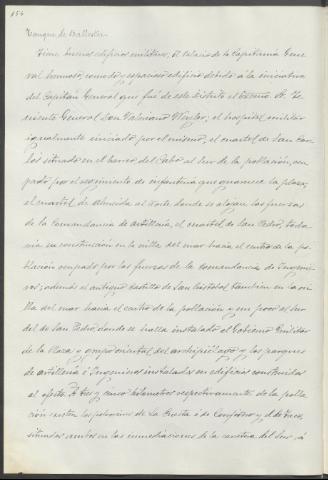 154
Tanque de Ballester.
Tiene buenos edificios militares, El Palacio de la Capitania Gene
ral hermoso, comodo y espacioso edificio debido á la iniciativa
del Capitán General que fué de este distrito el Excmo. Sr. Te
niente General Don Valeriano Weyler, el hospital militar
igualmente iniciado por el mismo, el cuartel de San Car
los situado en el barrio del Cabo al Sur de la población, ocu
pado por el regimiento de infanteria que guarnece la plaza,
el cuartel de Almeida al Norte donde se alojan las fuerzas
de la Comandancia de artilleria, el cuartel de San Pedro, toda
via en construcción en la orilla del mar hacia el centro de la po
blación ocupado por las fuerzas de la comandancia de Ingenie
ros, además el antiguo castillo de San Cristobal tambien en la ori
lla del mar hacia el centro de la población y un poco al Sur
del de San Pedro, donde se halla instalado el Gobierno Militar
de la Plaza y los parques
de artilleria é Ingenieros instalados en edificios construidos
al efecto. A tres y cinco kilometros respectivamente de la pobla
ción están los polvorines de La Cuesta ó de Confortero y el de
situados ambos en las inmediaciones de la carretera del Sur, á